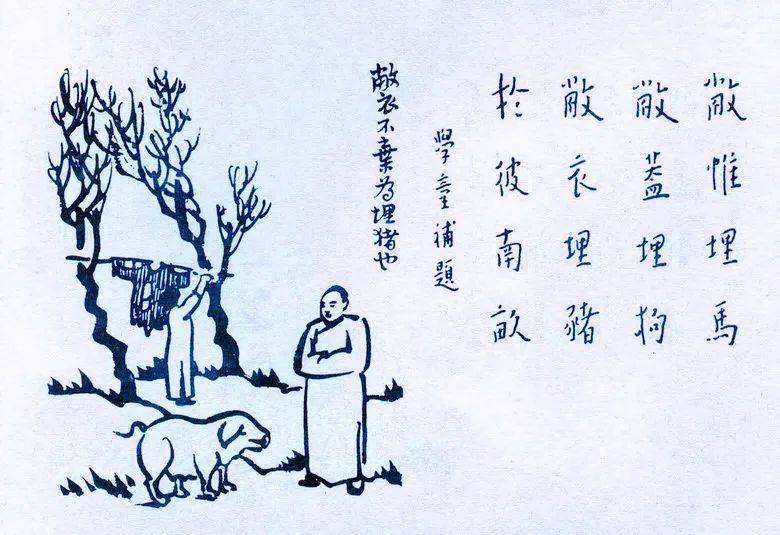 敝惟埋馬
敝蓋埋狗
敝衣埋豬
於彼南畝
學童補題
敝衣不棄為埋猪也